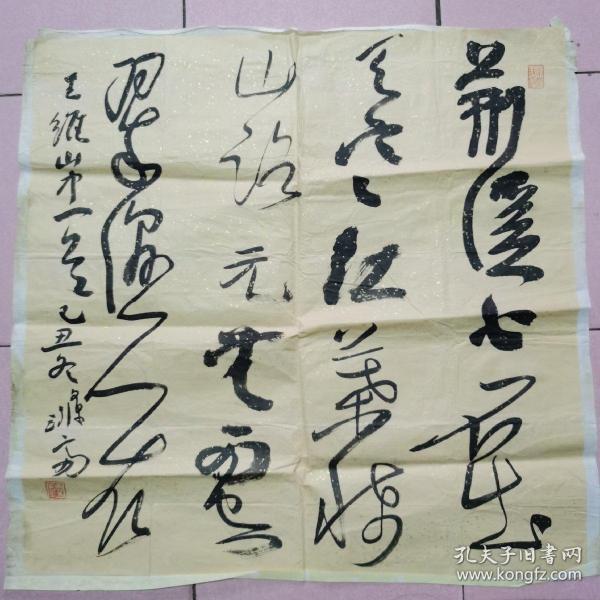 荆溪白石出
天寒红叶稀
山路元无雨空
翠湿人衣
王维山中一首 己丑冬
孔夫子旧书网
www.kongfz.com